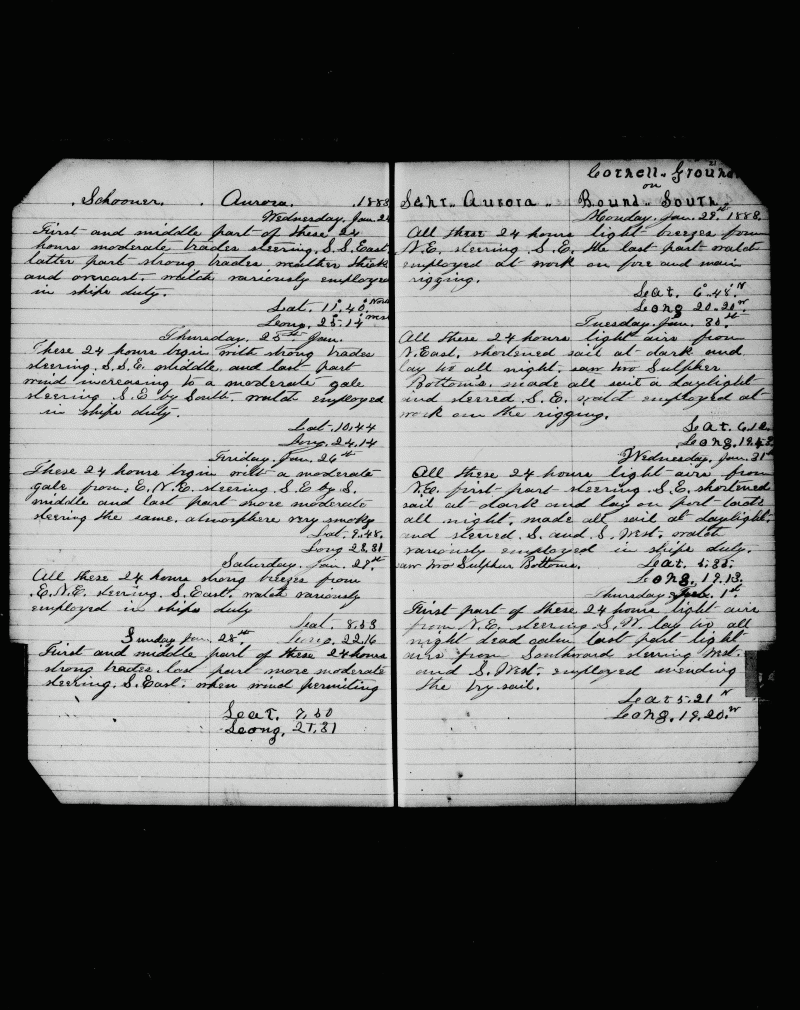 Schooner. Aurora. 1883
Wednesday. Jan. 24
First and middle part of these 24
hours moderate trades steering. S.S. East
latter part strong trades weather thick
and overcast. watch variously employed
in ships duty.
Lat. 11°.40' North
Long. 25°.14' West
Thursday. 25th Jan.
These 24 hours begin with strong trades
steering. S.S.E. middle and last part
wind increasing to a moderate gale
steering S.E. by South. watch employed
in ships duty.
Lat. 10.44
Long. 24.14
Friday. Jan. 26th
These 24 hours begin with a moderate
gale from. E.N.E. steering S.E. by S.
middle and last part more moderate
steering the same. atmosphere very smoky
Lat. 9.48.
Long 23.31
Saturday. Jan. 27th
All these 24 hours strong breezes from
E.N.E. steering. S. East. watch variously
employed in ships duty
Lat. 8.33
Sunday Jan. 28th Long. 22.16
First and middle part of these 24 hours
strong trades. last part more moderate
steering. S. East. when wind permiting
Leat. 7.30
Leong. 21.31
21
Cornell. Ground
on
Schr. Aurora. Bound. South.
Monday. Jan. 29th 1883.
All these 24 hours light breezes from
N.E. steering S.E. the last part watch
employed at work on fore and main
rigging.
Leat. 6°.48' N
Leong 20.20' W
Tuesday. Jan. 30th
All these 24 hours light airs from
N. East. shortened sail at dark and
lay too all night. saw two Sulpher
Bottoms. made all sail a daylight
and sterred S.E. watch employed at
work on the rigging.
Leat. 6.12
Leong. 19.42
Wednesday. Jan. 31st
All these 24 hours light airs from
N.E. first part steering S.E. shortened
sail at dark and lay on port tack
all night. made all sail at daylight.
and sterred S. and S. West. watch
variously employed in ships duty.
saw two Sulphur Bottoms. Leat. 5.35.
Leong. 19.13.
Thursday. 1st
First part of these 24 hours light airs
from N.E. steering S.W. lay too all
night dead calm last part light
airs from Southward sterring West.
and S. West. employed mending
the try-sail.
Leat 5.21 N
Leong. 19.20. W